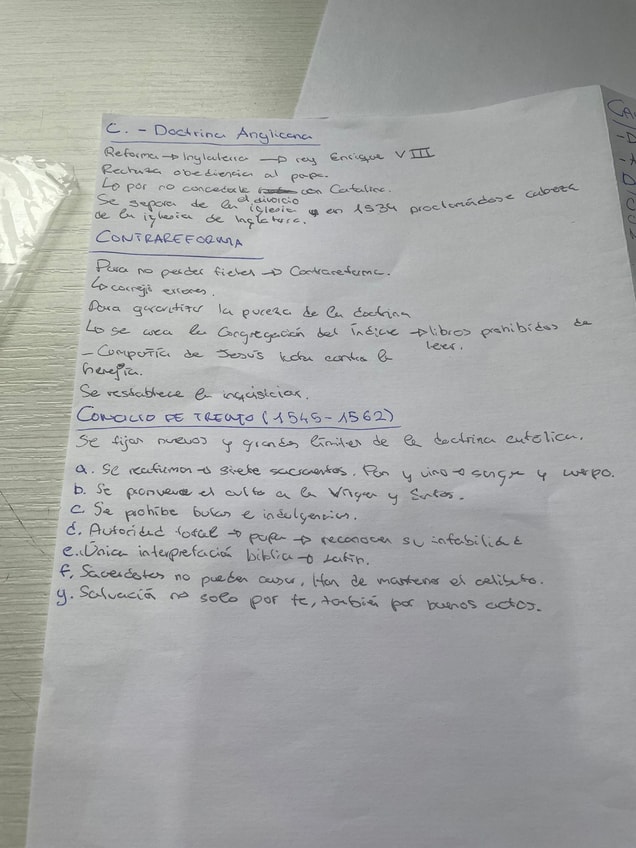 C. - Doctrina Anglicana
Reforma → Inglaterra → rey Enrique VIII
Rechaza obediencia al papa.
↳ por no concederle con Catalina.
el divorcio
Se separa de la iglesia y en 1534 proclamándose cabeza
de la iglesia de Inglaterra.
CONTRAREFORMA
Para no perder fieles → Contrareforma.
↳ corregir errores.
Para garantizar la pureza de la doctrina
↳ se crea la Congregación del Índice → libros prohibidos de
leer.
- Compañía de Jesús lucha contra la
herejía.
Se restablece la inquisición.
CONCILIO DE TRENTO (1545-1562)
Se fijan nuevos y grandes límites de la doctrina católica.
a. Se reafirman → siete sacramentos. Pan y vino → sangre y cuerpo.
b. Se promueve el culto a la Virgen y Santos.
c. Se prohibe bulas e indulgencias.
d. Autoridad total → papa → reconocer su infabilidad
e. Única interpretación biblia → latín.
f. Sacerdotes no pueden casar, Han de mantener el celibato.
g. Salvación no solo por fe, también por buenos actos.
CA